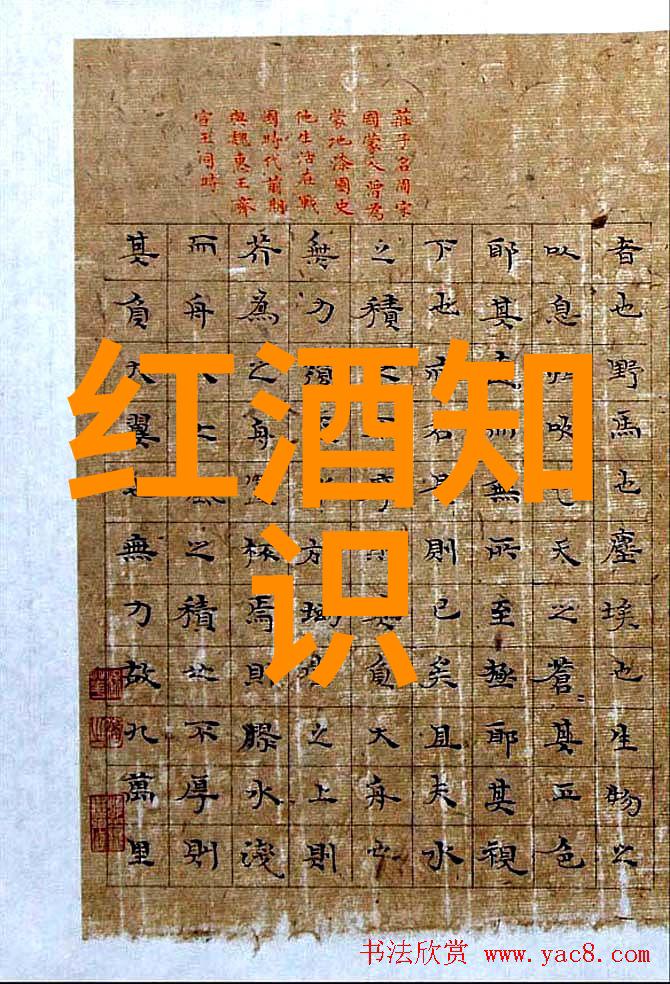 莊子名周宋
國蒙人曾為
蒙地漆園史
他生活在戰
國時代前期
與魏惠王齊
宣王同時
者也野馬也塵埃也生物之
以息相吹也天之蒼〻其正色
耶其遠而無所至極耶其視
下也亦若是則已矣且夫水
之積也不厚則其負大舟也
無力覆杯水於坳堂之上則
芥為之舟置杯焉則膠水淺
而舟大也風之積也不厚則
其負大翼也無力故九萬里
红酒知
识
书法欣赏 www.yac8.com